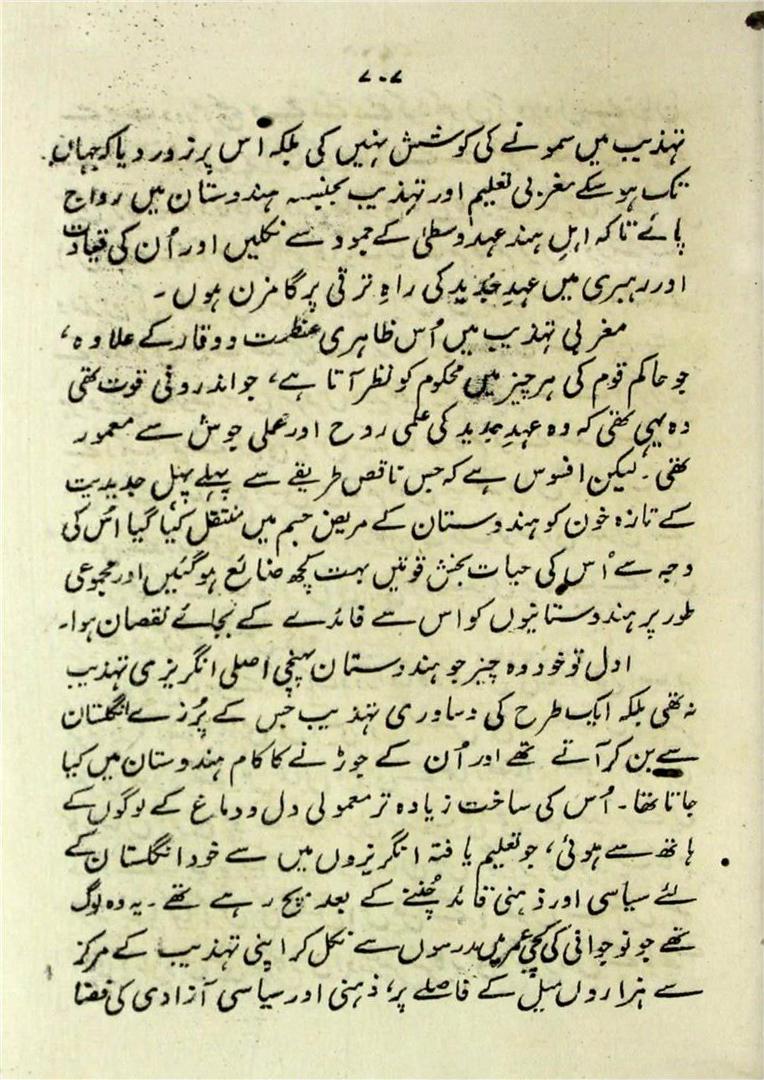 ۷۰۷
تہذیب میں سمونے کی کوشش نہیں کی بلکہ اُس پر زور دیا کہ جہاں
تک ہو سکے مغربی تعلیم اور تہذیب بجنسہ ہندوستان میں رواج
پائے تاکہ اہلِ ہند عہد وسطیٰ کے جمود سے نکلیں اور اُن کی قیادت
اور رہبری میں عہدِ جدید کی راہِ ترقی پر گامزن ہوں۔
مغربی تہذیب میں اُس ظاہری عظمت و وقار کے علاوہ،
جو حاکم قوم کی ہر چیز میں محکوم کو نظر آتا ہے، جو اندرونی قوت تھی
وہ یہی تھی کہ وہ عہدِ جدید کی علمی روح اور عملی جوش سے معمور
تھی۔ لیکن افسوس ہے کہ جس ناقص طریقے سے پہلے پہل جدیدیت
کے تازہ خون کو ہندوستان کے مریض جسم میں منتقل کیا گیا اُس کی
وجہ سے اُس کی حیات بخش قوتیں بہت کچھ ضائع ہوگئیں اور مجموعی
طور پر ہندوستانیوں کو اس سے فائدے کے بجائے نقصان ہوا۔
اول تو خود وہ چیز جو ہندوستان پہنچی اصلی انگریزی تہذیب
نہ تھی بلکہ ایک طرح کی دساوری تہذیب جس کے پُرزے انگلستان
سے بن کر آتے تھے اور اُن کے جوڑنے کا کام ہندوستان میں کیا
جاتا تھا۔ اُس کی ساخت زیادہ تر معمولی دل و دماغ کے لوگوں کے
ہاتھ سے ہوئی، جو تعلیم یافتہ انگریزوں میں سے خود انگلستان کے
لئے سیاسی اور ذہنی قائد چُننے کے بعد بچ رہے تھے۔ یہ وہ لوگ
تھے جو نوجوانی کی کچی عمر میں مدرسوں سے نکل کر اپنی تہذیب کے مرکز
سے ہزاروں میل کے فاصلے پر، ذہنی اور سیاسی آزادی کی فضا